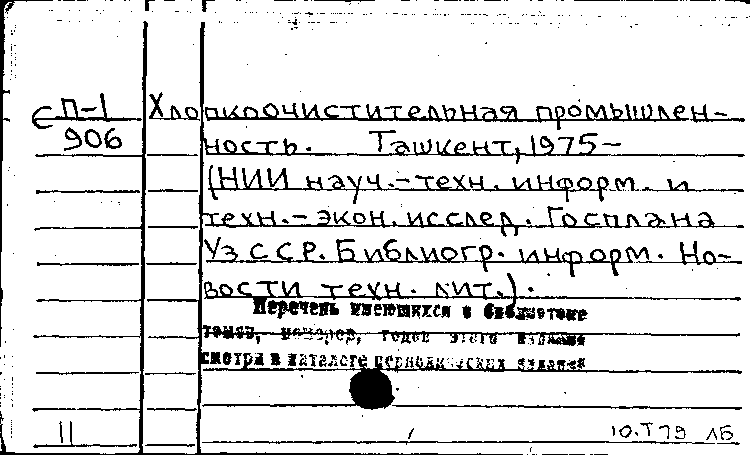 С П-1 Хлопкоочистительная промышлен-
906 ность. Ташкент, 1975-
(НИИ науч.-техн. информ. и
техн.-экон. исслед. Госплана
УзССР. Библиогр. информ. Но-
вости техн. лит.).
Перечень имеющихся в библиотеке
томов, номеров, годов этого издания
смотри в каталоге периодических изданий
11 10.Т79 ЛБ